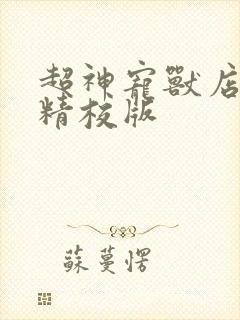 超神寵獸店
精校版
蘇蔓愣